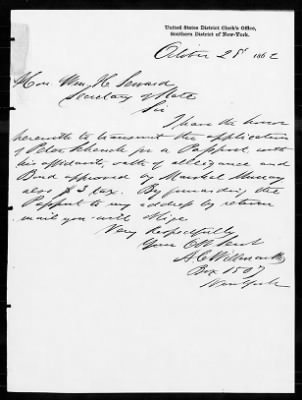 United States District Clerk's Office,
Southern District of New-York.
October 28th 1862
Hon. Wm. H. Seward
Secretary of State
Sir
I have the honor
herewith to transmit the application
of Peter Schenck for a Passport with
his affidavits, oath of allegiance and
Bond approved by Marshal Murray
also $3 tax. By forwarding the
Passport to my address by return
mail you will oblige
Very Respectfully
Your Obt Servt
A. C. Willmarth
Box 1507
New York